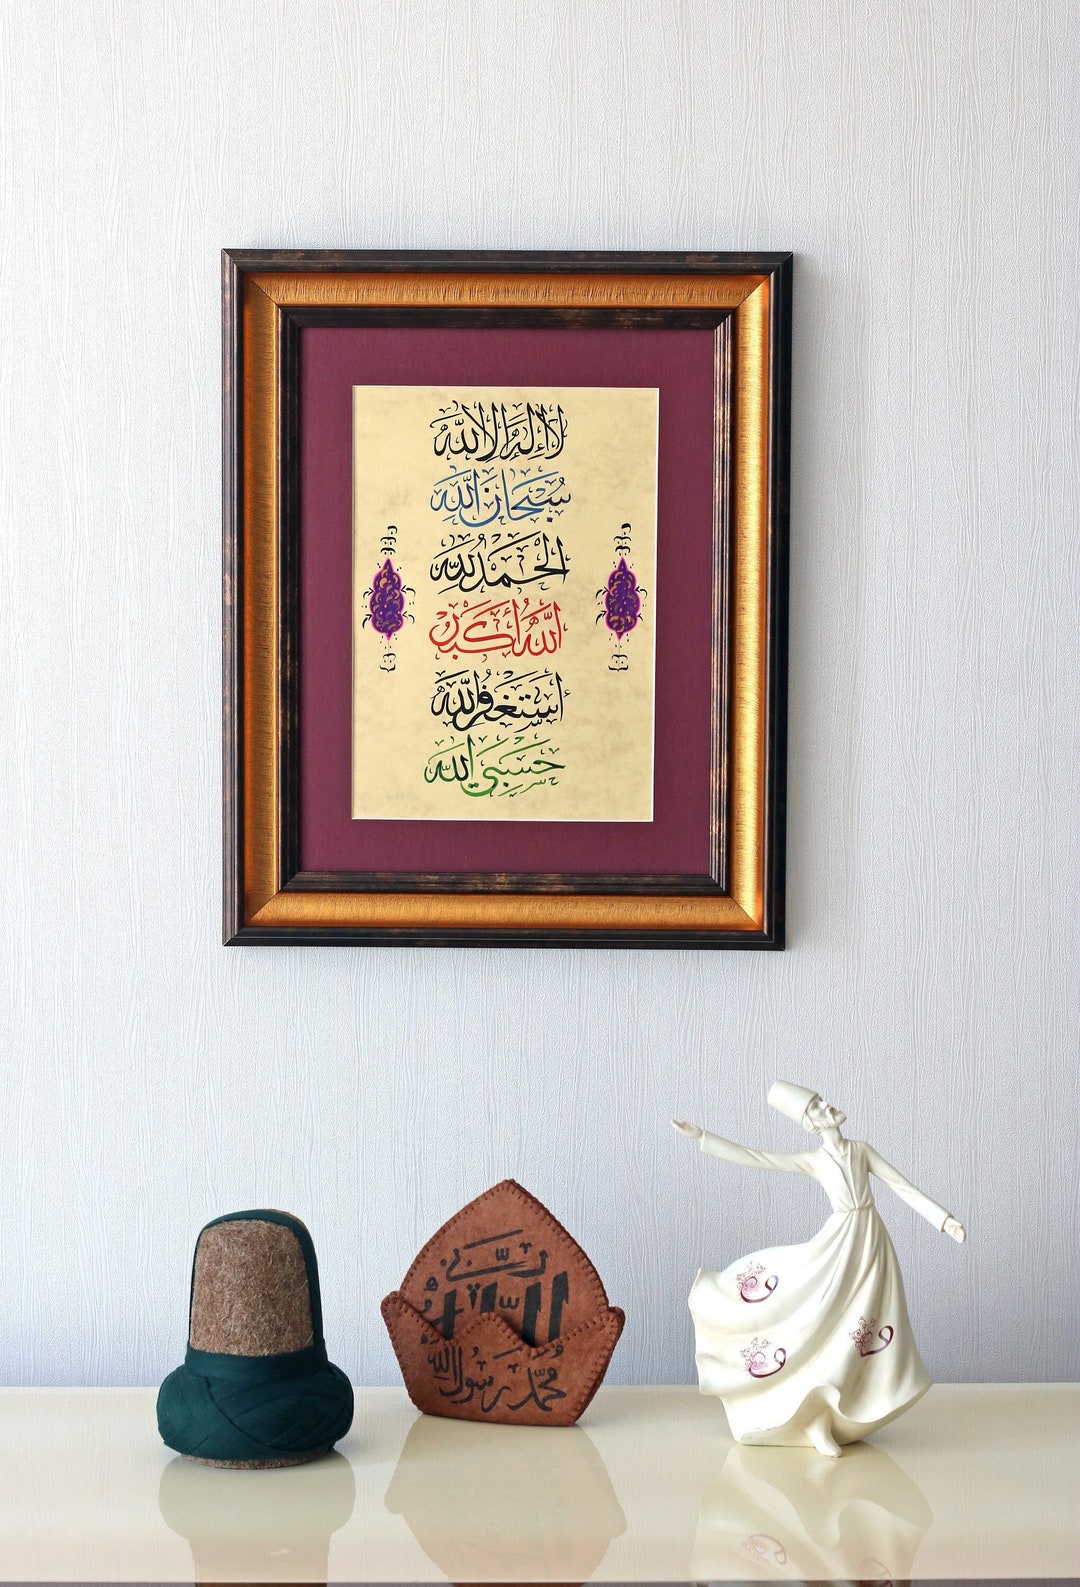 لا إله إلا الله
سُبْحَانَ اللّٰهِ
الحَمْدُ لِلّٰهِ
اللّٰهُ أَكْبَرُ
أَسْتَغْفِرُ اللّٰهَ
حَسْبِيَ اللّٰهُ
ربي
الله
محمد رسول الله
و
و
و